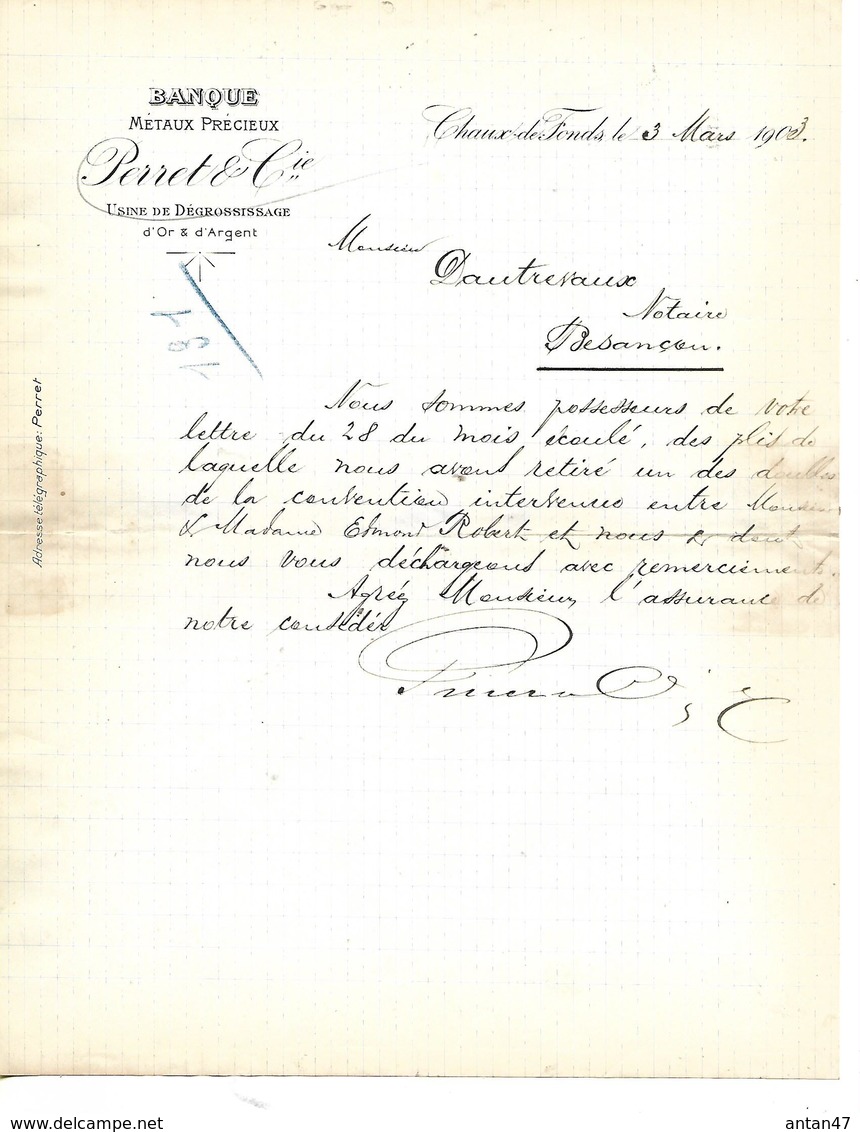 BANQUE
MÉTAUX PRÉCIEUX
Perret & Cie
USINE DE DÉGROSSISSAGE
d'Or & d'Argent
Chaux-de-Fonds, le 3 Mars 1903.
Monsieur
Dautrevaux
Notaire
Besançon.
191
Adresse télégraphique: Perret
Nous sommes possesseurs de votre
lettre du 28 du mois écoulé, des plis de
laquelle nous avons retiré un des doubles
de la convention intervenue entre Monsieur
& Madame Edmond Robert et nous & dont
nous vous déchargeons avec remerciements.
Agréez Monsieur, l'assurance de
notre considér
delcampe.net
antan47